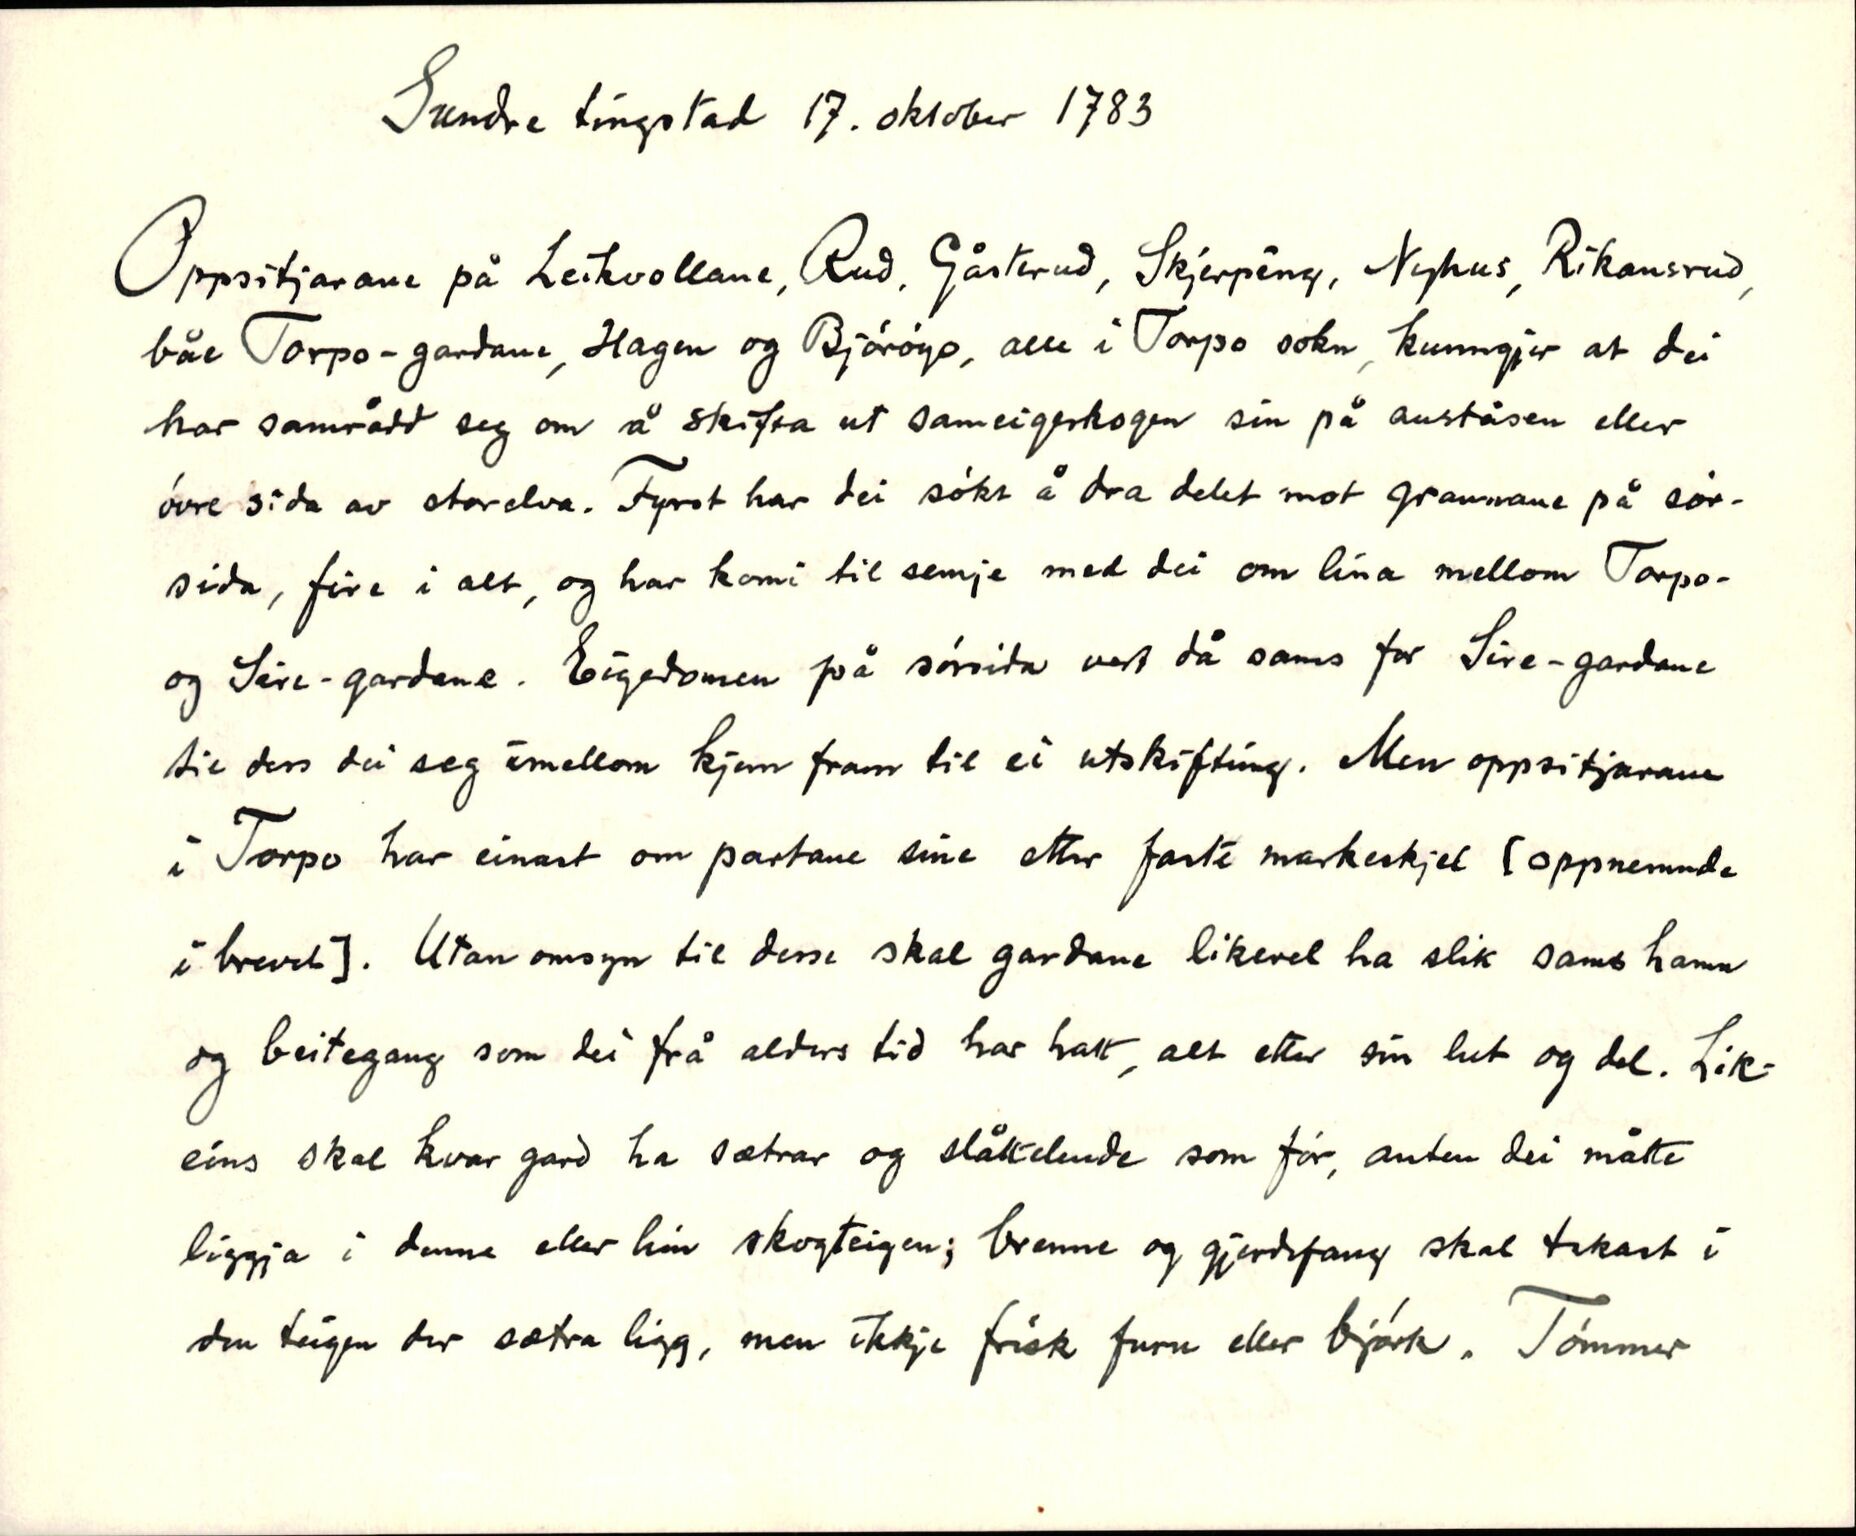 Sundre tingstad 17. oktober 1783
Oppsitjarane på Leikvollane, Rud, Gåsterud, Skjerping, Nyhus, Rikansrud,
båe Torpo-gardane, Hagen og Bjóróyo, alle i Torpo sokn, kunngjer at dei
har samrådd seg om å skifta ut sameigeskogen sin på auståsen eller
óvre sida av storelva. Fyrst har dei sókt å dra delet mot grannane på sór-
sida, fire i alt, og har komi til semje med dei om lina mellom Torpo-
og Sire-gardane. Eigedomen på sórsida vert då sams for Sire-gardane
til ders dei seg imellom kjem fram til ei utskifting. Men oppsitjarane
i Torpo har einast om partane sine etter faste markeskjel [oppnemnde
i brevet]. Utan omsyn til desse skal gardane likevel ha slik sams hamn
og beitegang som dei frå alders tid har hatt, alt etter sin lut og del. Lik-
eins skal kvar gard ha sætrar og slåttelende som fór, anten dei måtte
liggja i denne eller hin skogteigen; brenne og gjerdefang skal takast i
den teigen der sætra ligg, men ikkje frisk furu eller bjórk. Tómmer